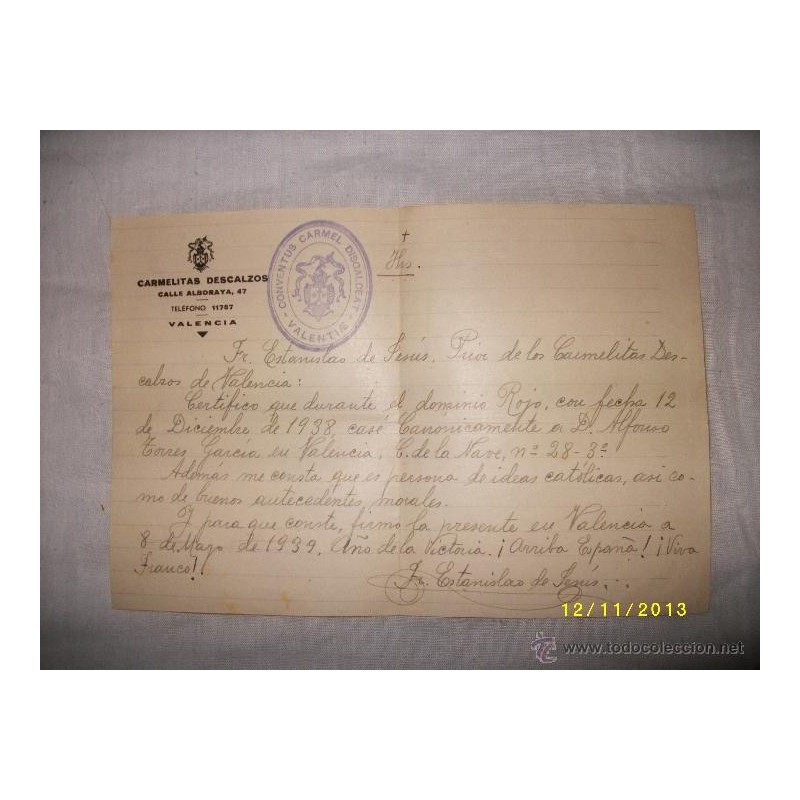 CARMELITAS DESCALZOS
CALLE ALBORAYA, 47
TELÉFONO 11757
VALENCIA
CONVENTUS CARMEL DISCALCEAT
VALENTIÆ
†
Jhs.
Fr. Estanislao de Jesús. Prior de los Carmelitas Des-
calzos de Valencia:
Certifico que durante el dominio Rojo, con fecha 12
de Diciembre de 1938, casé Canonicamente a D. Alfonso
Torres García en Valencia, C. de la Nave, nº 28-3º
Además me consta que es persona de ideas católicas, asi co-
mo de buenos antecedentes morales.
Y para que conste, firmo la presente en Valencia a
8 de Mayo de 1939. Año de la Victoria. ¡Arriba España! ¡Viva
Franco!
Fr. Estanislao de Jesús.
12/11/2013
www.todocoleccion.net